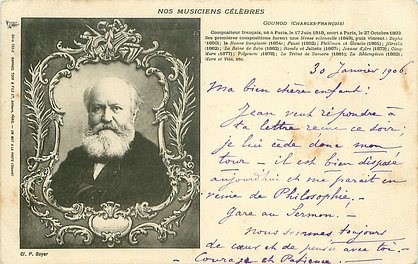 NOS MUSICIENS CÉLÈBRES
GOUNOD (CHARLES-FRANÇOIS)
Compositeur français, né à Paris, le 17 Juin 1818, mort à Paris, le 27 Octobre 1893.
Ses premières compositions furent une Messe solennelle (1849), puis vinrent : Sapho
(1850) ; la Nonne Sanglante (1854) ; Faust (1859) ; Philémon et Baucis ; Mireille
(1863) ; La Reine de Saba (1862) ; Roméo et Juliette (1867) ; Jeanne d'Arc (1873) ; Cinq-
Mars (1877) ; Polyeucte (1878) ; Le Tribut de Zamora (1881) ; La Rédemption (1882) ;
Mors et Vita, etc.
30 Janvier 1906
Ma bien chère enfant :
Jean veut répondre à
ta lettre reçue ce soir ;
je lui cède donc mon
tour — il est bien disposé
aujourd'hui et me paraît en
veine de Philosophie. —
Gare au Sermon. —
Nous sommes toujours
de cœur et de pensée avec toi. —
Courage et Patience. —
Cl. P. Boyer